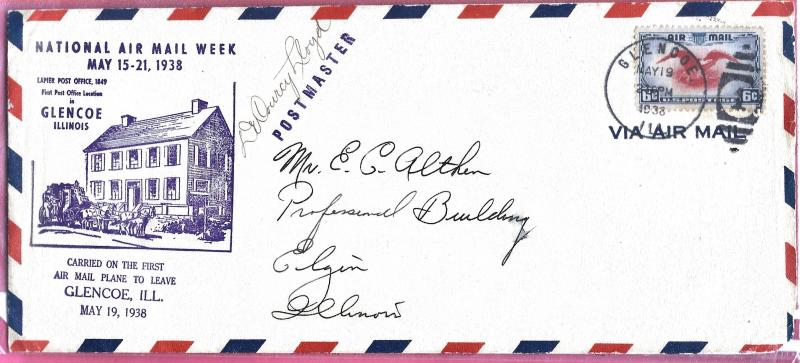 NATIONAL AIR MAIL WEEK
MAY 15-21, 1938
LAPIER POST OFFICE, 1849
First Post Office Location
in
GLENCOE
ILLINOIS
CARRIED ON THE FIRST
AIR MAIL PLANE TO LEAVE
GLENCOE, ILL.
MAY 19, 1938
DeCourcy Lloyd
POSTMASTER
AIR MAIL
6c U.S. POSTAGE 6c
GLENCOE
MAY 19
PM
1938
ILL.
VIA AIR MAIL
Mr. E. C. Althen
Professional Building
Elgin
Illinois